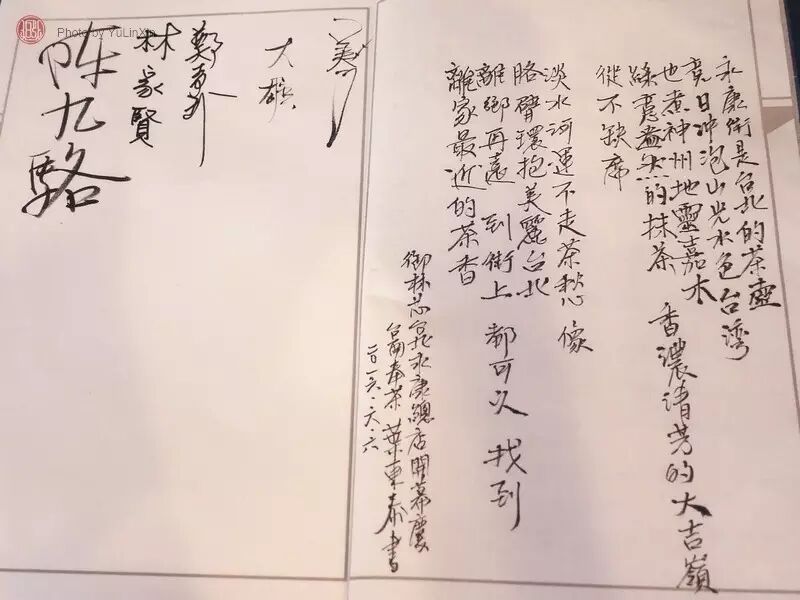 永康街是台北的茶壺
竟日沖泡山光水色台灣
也煮神州地靈嘉木
綠意盎然的抹茶 香濃清芳的大吉嶺
從不缺席
淡水河運不走茶愁 像
胳臂環抱美麗台北
離鄉再遠 到街上 都可以找到
離家最近的茶香
御林芯窕永康總店開幕慶
台南奉茶 葉東泰書
二〇一六.六.六
大鵬
林家賢
陈九駱
Photo by YuLinXin